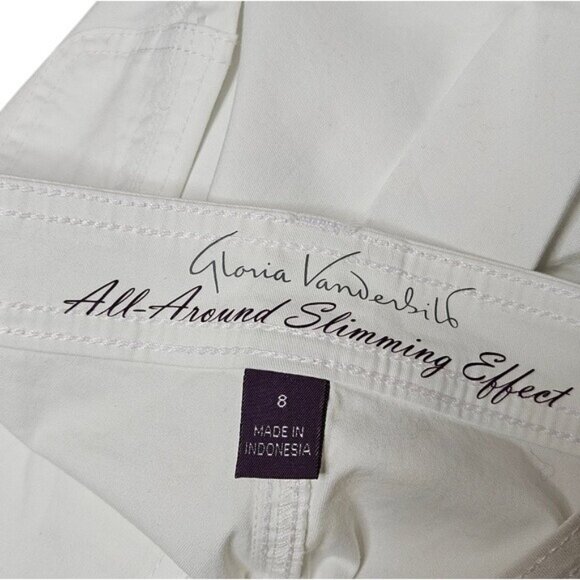 Gloria Vanderbilt
All-Around Slimming Effect
8
MADE IN
INDONESIA